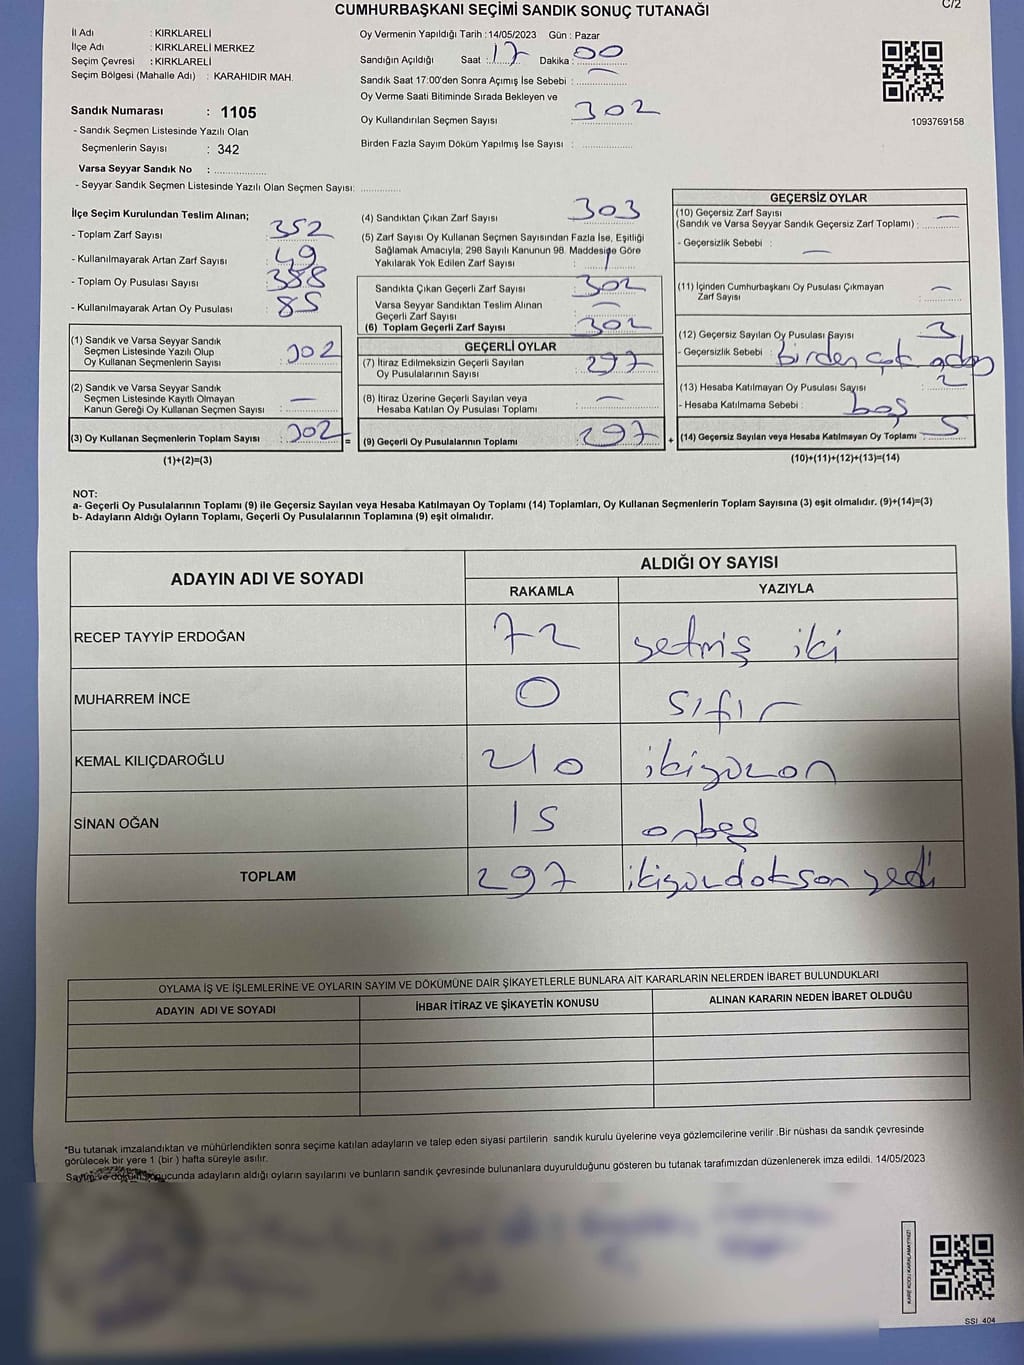 C/2
CUMHURBAŞKANI SEÇİMİ SANDIK SONUÇ TUTANAĞI
İl Adı : KIRKLARELİ
İlçe Adı : KIRKLARELİ MERKEZ
Seçim Çevresi : KIRKLARELİ
Seçim Bölgesi (Mahalle Adı) : KARAHIDIR MAH.
Sandık Numarası : 1105
- Sandık Seçmen Listesinde Yazılı Olan
Seçmenlerin Sayısı : 342
Varsa Seyyar Sandık No : ................
- Seyyar Sandık Seçmen Listesinde Yazılı Olan Seçmen Sayısı: ............
Oy Vermenin Yapıldığı Tarih : 14/05/2023 Gün : Pazar
Sandığın Açıldığı Saat : 17 Dakika : 00
Sandık Saat 17:00'den Sonra Açımış İse Sebebi : —
Oy Verme Saati Bitiminde Sırada Bekleyen ve
Oy Kullandırılan Seçmen Sayısı : 302
Birden Fazla Sayım Döküm Yapılmış İse Sayısı : ................
1093769158
İlçe Seçim Kurulundan Teslim Alınan;
- Toplam Zarf Sayısı : 352
- Kullanılmayarak Artan Zarf Sayısı : 49
- Toplam Oy Pusulası Sayısı : 388
- Kullanılmayarak Artan Oy Pusulası : 85
(1) Sandık ve Varsa Seyyar Sandık
Seçmen Listesinde Yazılı Olup
Oy Kullanan Seçmenlerin Sayısı : 302
(2) Sandık ve Varsa Seyyar Sandık
Seçmen Listesinde Kayıtlı Olmayan
Kanun Gereği Oy Kullanan Seçmen Sayısı : —
(3) Oy Kullanan Seçmenlerin Toplam Sayısı : 302 =
(1)+(2)=(3)
(4) Sandıktan Çıkan Zarf Sayısı : 303
(5) Zarf Sayısı Oy Kullanan Seçmen Sayısından Fazla İse, Eşitliği
Sağlamak Amacıyla; 298 Sayılı Kanunun 98. Maddesine Göre
Yakılarak Yok Edilen Zarf Sayısı : 1
Sandıkta Çıkan Geçerli Zarf Sayısı : 302
Varsa Seyyar Sandıktan Teslim Alınan
Geçerli Zarf Sayısı : —
(6) Toplam Geçerli Zarf Sayısı : 302
GEÇERLİ OYLAR
(7) İtiraz Edilmeksizin Geçerli Sayılan
Oy Pusulalarının Sayısı : 297
(8) İtiraz Üzerine Geçerli Sayılan veya
Hesaba Katılan Oy Pusulası Toplamı : —
(9) Geçerli Oy Pusulalarının Toplamı : 297 +
GEÇERSİZ OYLAR
(10) Geçersiz Zarf Sayısı
(Sandık ve Varsa Seyyar Sandık Geçersiz Zarf Toplamı) : —
- Geçersizlik Sebebi : —
(11) İçinden Cumhurbaşkanı Oy Pusulası Çıkmayan
Zarf Sayısı : —
(12) Geçersiz Sayılan Oy Pusulası Sayısı : 3
- Geçersizlik Sebebi : birden çok aday
(13) Hesaba Katılmayan Oy Pusula Sayısı : 2
- Hesaba Katılmama Sebebi : boş
(14) Geçersiz Sayılan veya Hesaba Katılmayan Oy Toplamı : 5
(10)+(11)+(12)+(13)=(14)
NOT:
a- Geçerli Oy Pusulalarının Toplamı (9) ile Geçersiz Sayılan veya Hesaba Katılmayan Oy Toplamı (14) Toplamları, Oy Kullanan Seçmenlerin Toplam Sayısına (3) eşit olmalıdır. (9)+(14)=(3)
b- Adayların Aldığı Oyların Toplamı, Geçerli Oy Pusulalarının Toplamına (9) eşit olmalıdır.
ADAYIN ADI VE SOYADI
ALDIĞI OY SAYISI
RAKAMLA YAZIYLA
RECEP TAYYİP ERDOĞAN 72 yetmiş iki
MUHARREM İNCE 0 sıfır
KEMAL KILIÇDAROĞLU 210 ikiyüzon
SİNAN OĞAN 15 onbeş
TOPLAM 297 ikiyüzdoksan yedi
OYLAMA İŞ VE İŞLEMLERİNE VE OYLARIN SAYIM VE DÖKÜMÜNE DAİR ŞİKAYETLERLE BUNLARA AİT KARARLARIN NELERDEN İBARET BULUNDUKLARI
ADAYIN ADI VE SOYADI İHBAR İTİRAZ VE ŞİKAYETİN KONUSU ALINAN KARARIN NEDEN İBARET OLDUĞU
*Bu tutanak imzalandıktan ve mühürlendikten sonra seçime katılan adayların ve talep eden siyasi partilerin sandık kurulu üyelerine veya gözlemcilerine verilir .Bir nüshası da sandık çevresinde
görülecek bir yere 1 (bir ) hafta süreyle asılır.
Sayım ve döküm sonucunda adayların aldığı oyların sayılarını ve bunların sandık çevresinde bulunanlara duyurulduğunu gösteren bu tutanak tarafımızdan düzenlenerek imza edildi. 14/05/2023
KARE KODU KARALAMAYINIZ!
SSI_404